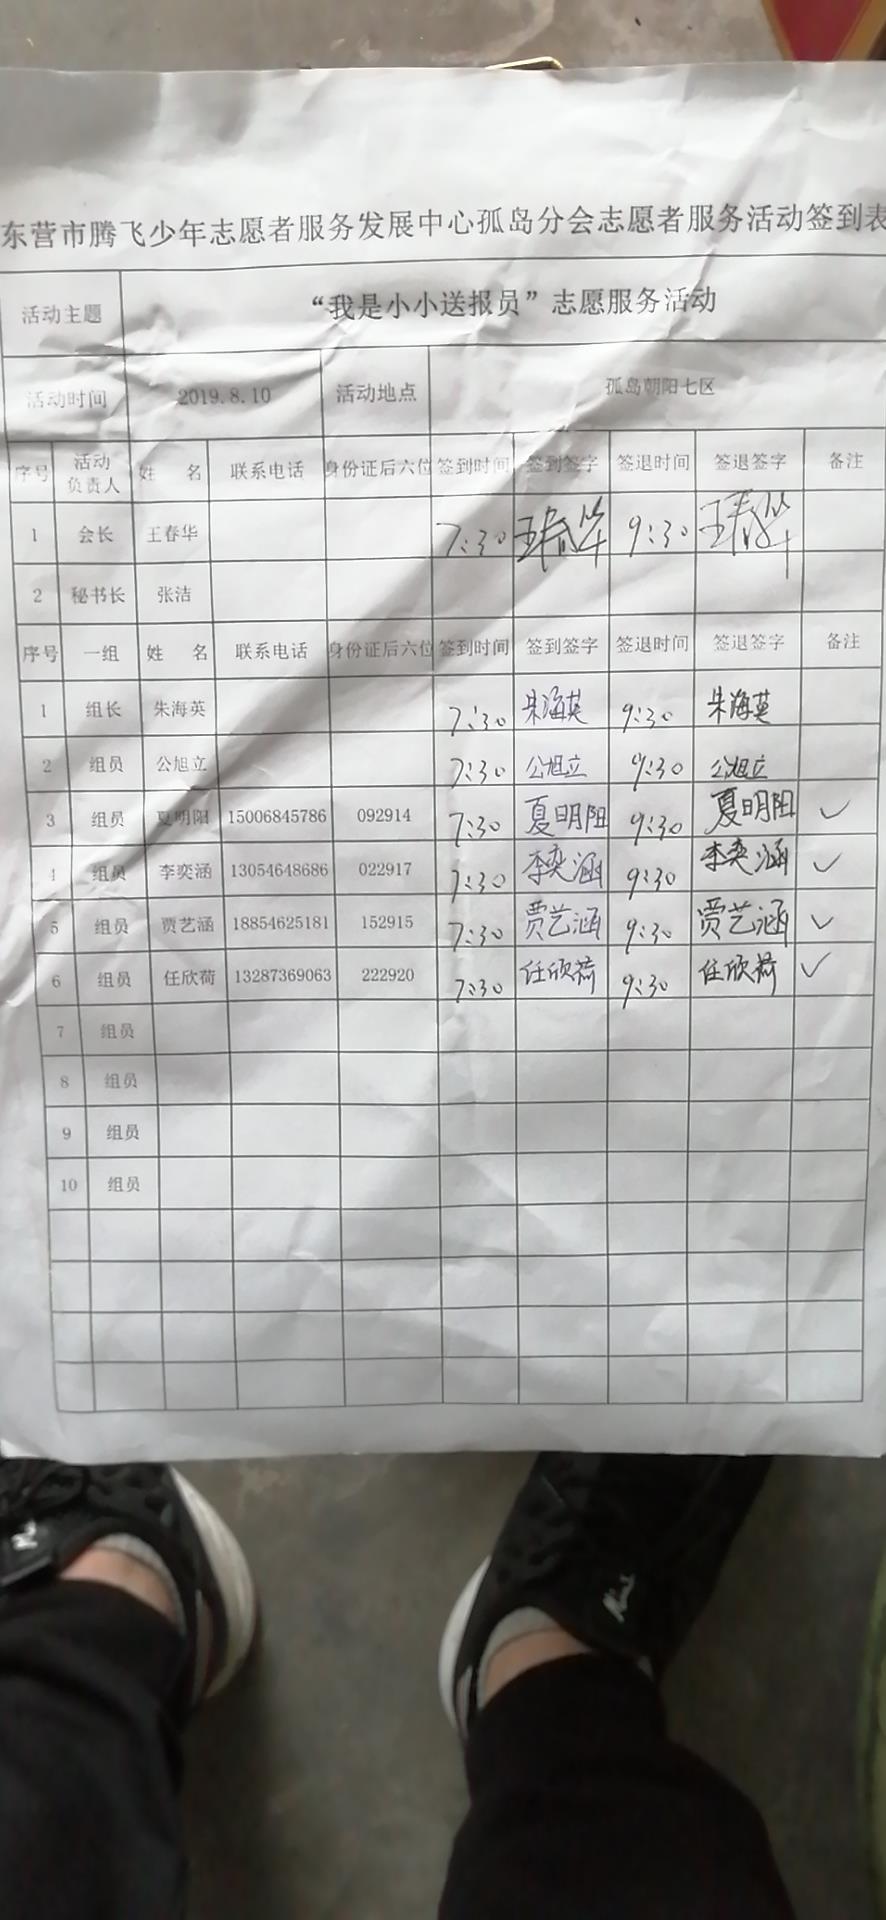 东营市腾飞少年志愿者服务发展中心孤岛分会志愿者服务活动签到表
活动主题 “我是小小送报员”志愿服务活动
活动时间 2019.8.10 活动地点 孤岛朝阳七区
序号 活动负责人 姓 名 联系电话 身份证后六位 签到时间 签到签字 签退时间 签退签字 备注
1 会长 王春华 7:30 王春华 9:30 王春华
2 秘书长 张洁
序号 一组 姓 名 联系电话 身份证后六位 签到时间 签到签字 签退时间 签退签字 备注
1 组长 朱海英 7:30 朱海英 9:30 朱海英
2 组员 公旭立 7:30 公旭立 9:30 公旭立
3 组员 夏明阳 15006845786 092914 7:30 夏明阳 9:30 夏明阳 ✓
4 组员 李奕涵 13054648686 022917 7:30 李奕涵 9:30 李奕涵 ✓
5 组员 贾艺涵 18854625181 152915 7:30 贾艺涵 9:30 贾艺涵 ✓
6 组员 任欣荷 13287369063 222920 7:30 任欣荷 9:30 任欣荷 ✓
7 组员
8 组员
9 组员
10 组员